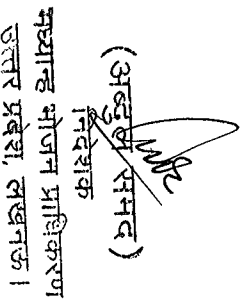 (अब्दुल समद)
निदेशक
मध्यान्ह भोजन प्राधिकरण
उत्तर प्रदेश, लखनऊ।